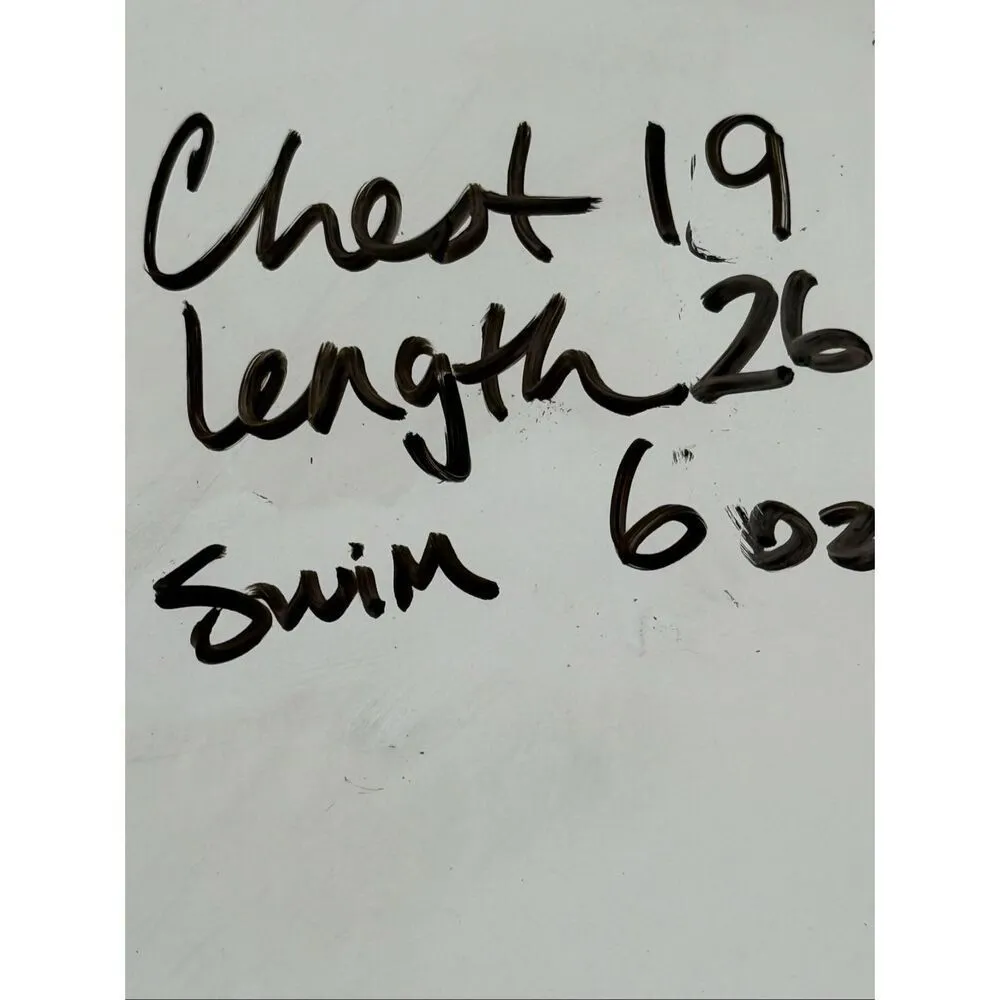 Chest 19
Length 26
Swim 6 oz